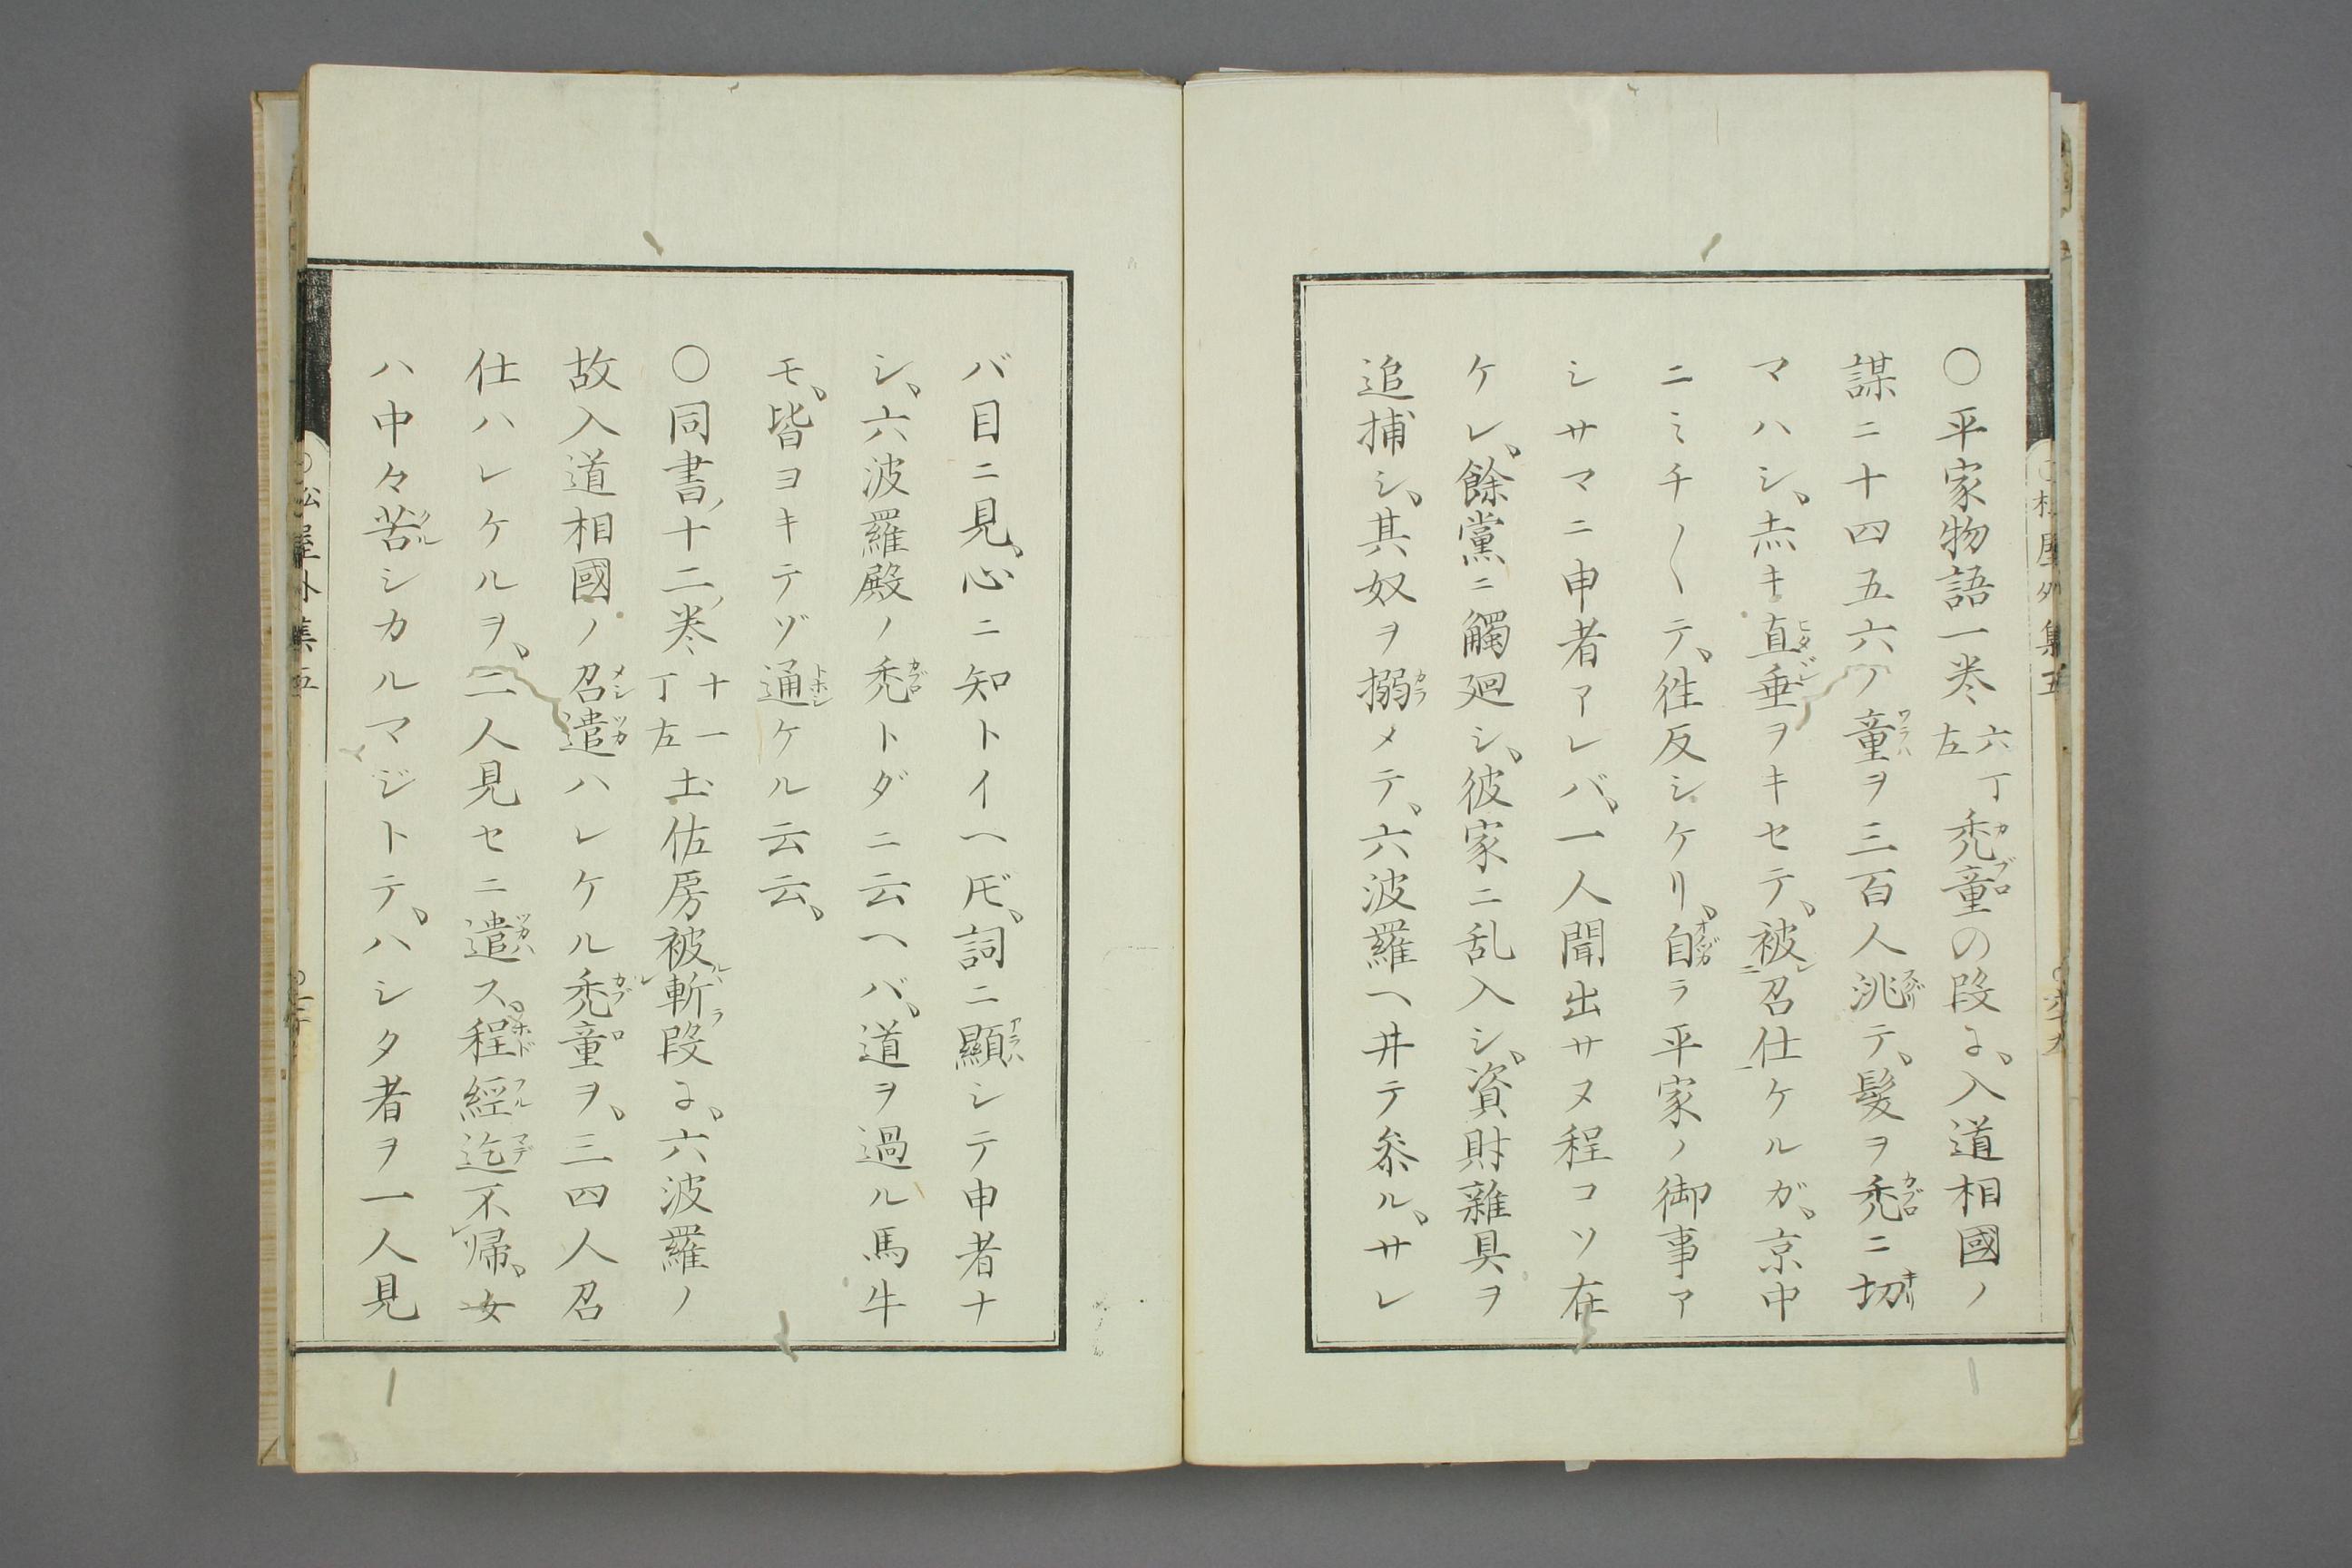 〇平家物語一巻六丁左禿童の段よ、入道相國ノ
謀ニ十四五六ノ童ヲ三百人洮テ、髪ヲ禿ニ切
マハシ、赤キ直垂ヲキセテ、被召仕ケルガ、京中
ニミチ〳〵テ、徃反シケリ、自ラ平家ノ御事ア
シサマニ申者アレバ、一人聞出サヌ程コソ在
ケレ、餘黨ニ觸廻シ、彼家ニ乱入シ、資財雜具ヲ
追捕シ、其奴ヲ搦メテ、六波羅ヘ井テ参ル、サレ
バ目ニ見、心ニ知トイヘドモ、詞ニ顯シテ申者ナ
シ、六波羅殿ノ禿トダニ云ヘバ、道ヲ過ル馬牛
モ、皆ヨキテゾ通ケル云云、
〇同書十二巻十一丁左土佐房被斬段よ、六波羅ノ
故入道相國ノ召遣ハレケル禿童ヲ、三四人召
仕ハレケルヲ、二人見セニ遣ス、程經迄不帰、女
ハ中々苦シカルマジトテ、ハシタ者ヲ一人見
松屋外集五